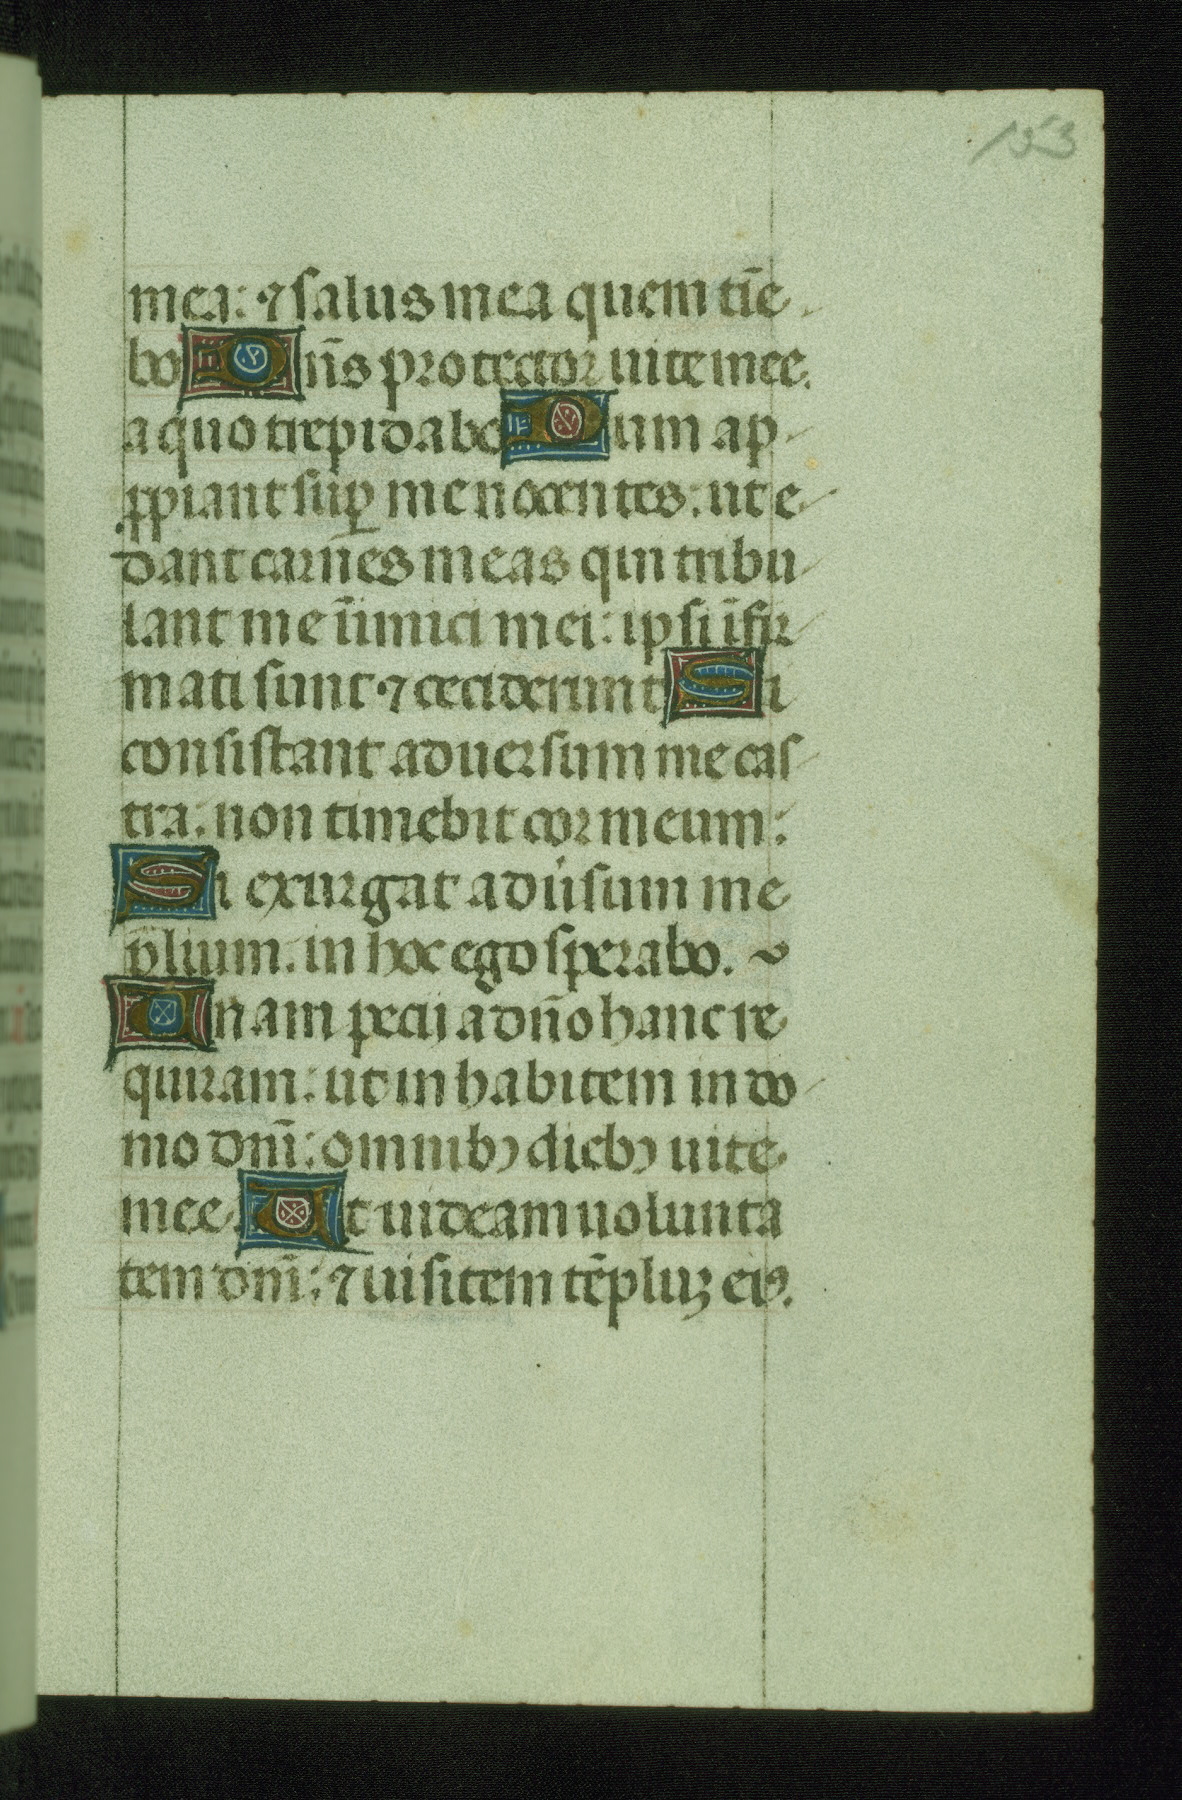 153
mea: ⁊ salus mea quem tīe
bo Dn̄s protector uite mee.
a quo trepidabo Dum ap
ꝓpiant suꝑ me nocentes: ut e
dant carnes meas qui tribu
lant me īimici mei: ipsi īfir
mati sunt ⁊ ceciderunt Si
consistant aduersum me cas
tra: non timebit cor meum:
Si exurgat adúsum me
p̄lium. in hoc ego sperabo.
Unam pecij a dn̄o hanc re
quiram: ut inhabitem in do
mo dnī: omnibꝫ diebꝫ uite
mee. Ut uideam uolunta
tem dnī: ⁊ uisitem tēpluꝫ eiꝰ.